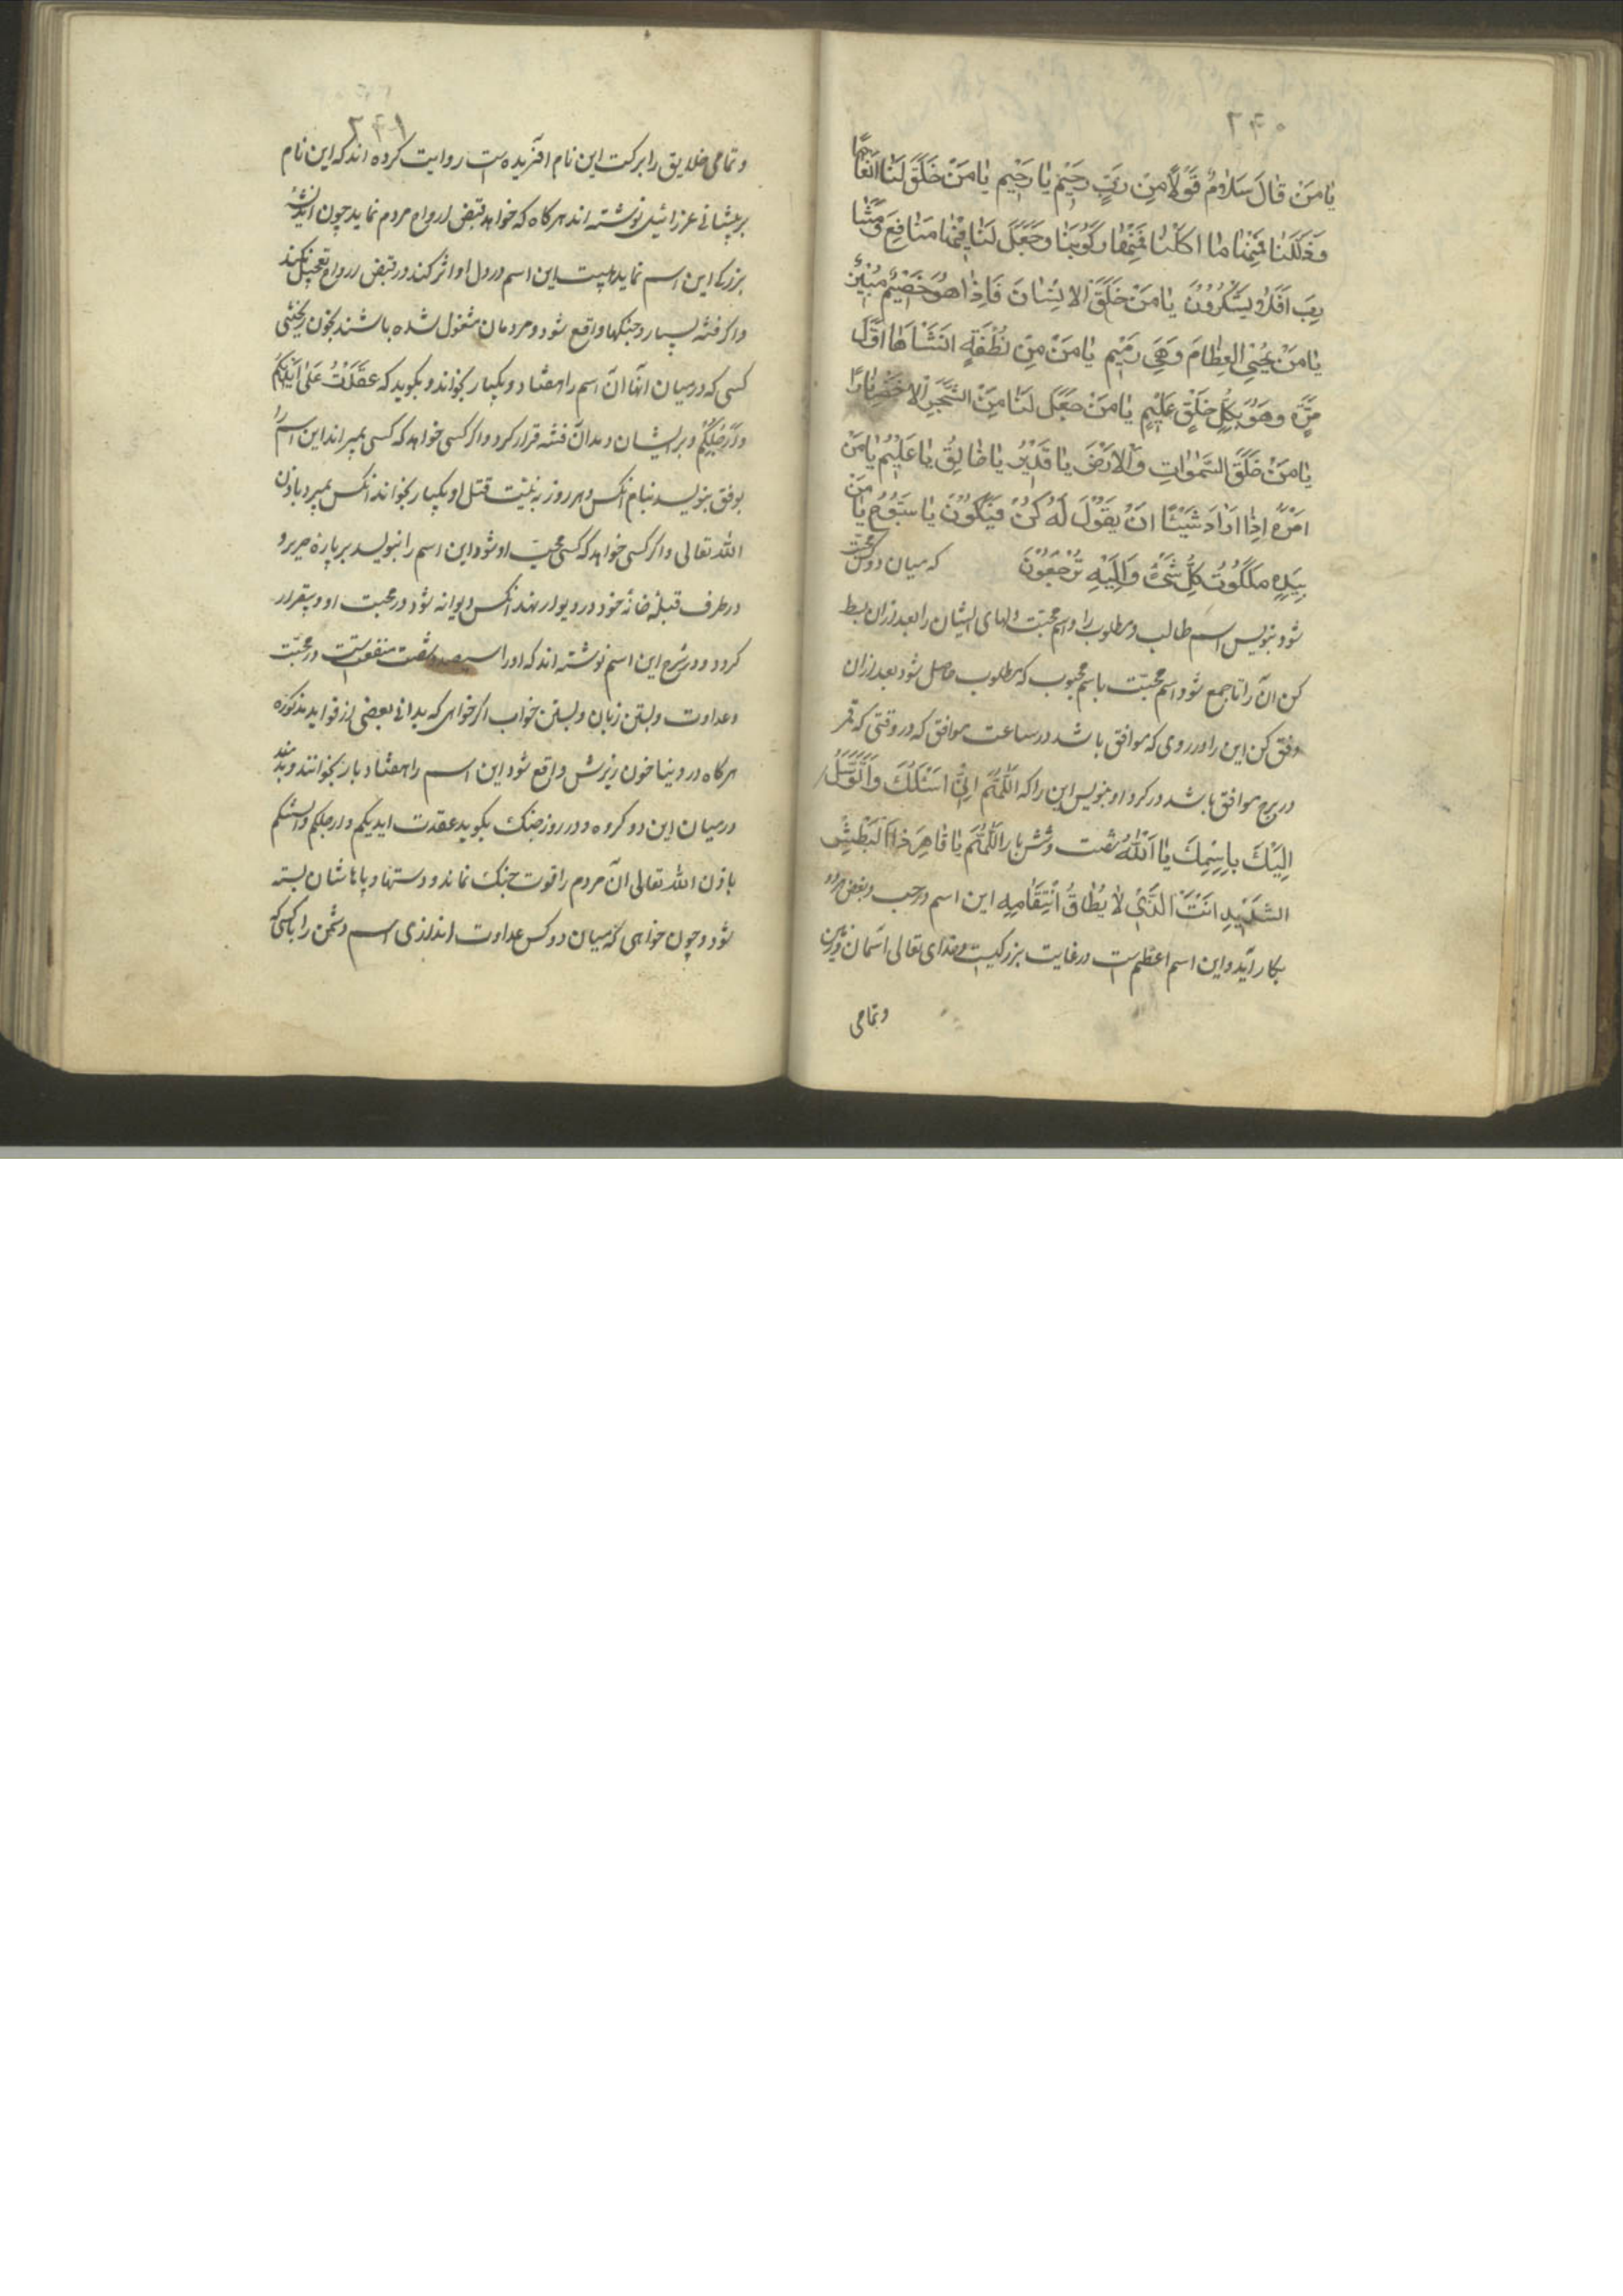 ۲۴۰
یا مَنْ قالَ سَلامٌ قَوْلاً مِنْ رَبٍّ رَحیمٍ یا رَحیم یا مَنْ خَلَقَ لَنا اَنعاماً
وَذَلَّلَنا فَمِنْها ما اَکَلْنا فَمِنْها رَکُوبَنا وَجَعَلَ لَنا فیها مَنافِعَ وَمَشا
رِبَ اَفَلا یَشْکُرُونَ یا مَنْ خَلَقَ الاِنْسانَ فَاِذا هُوَ خَصیمٌ مُبینٌ
یا مَنْ یُحْیِی العِظامَ وَهِیَ رَمیم یا مَنْ مِنْ نُطْفَةٍ اَنْشَاَها اَوَّلَ
مَرَّه وَهُوَ بِکُلِّ خَلْقٍ عَلیم یا مَنْ جَعَلَ لَنا مِنَ الشَّجَرِ الاَخْضَرِ نارًا
یا مَنْ خَلَقَ السَّمٰواتِ وَالاَرْضَ یا قَدیرُ یا خالِقُ یا عَلیمُ یا مَنْ
اَمْرُهُ اِذا اَرادَ شَیْئًا اَنْ یَقُولَ لَهُ کُنْ فَیَکُونُ یا سَبُّوحُ یا مَنْ
بِیَدِهِ مَلَکُوتُ کُلِّ شَیْءٍ وَاِلَیْهِ تُرْجَعُونَ که میان دو کس محبّت
شود بنویس اسم طالب و مطلوب را و اسم محبّت دلهای ایشان را بعد ازان بسط
کن آن را تا جمع شود اسم محبّت باسم محبوب که مطلوب حاصل شود بعد ازان
وفق کن این را در روی که موافق باشد در ساعت موافق که در وقتی که قمر
در برج موافق باشد در کرد او بنویس این را که اَللّٰهُمَّ اِنّی اَسْئَلُکَ وَاَتَوَسَّلُ
اِلَیْکَ بِاِسْمِکَ یا اَللّٰهُ شصت و شش بار اَللّٰهُمَّ یا قاهِرَ ذَا البَطْشِ
الشَّدیدِ اَنْتَ الَّذی لا یُطاقُ اِنْتِقامِهِ این اسم در حب و بغض هر دو
بکار آید و این اسم اعظم است در غایت بزرکیست و خدای تعالی آسمان و زمین
وتمامی
۲۴۱
وتمامی خلایق را ببرکت این نام آفریده است روایت کرده اند که این نام
بر پیشانی عزرائیل نوشته اند هر کاه که خواهد قبض ارواح مردم نماید چون اندیشهٔ
بزرکی این اسم نماید هیبت این اسم در دل او اثر کند در قبض ارواح تعجیل نکند
و اکر فتنه بسیار و جنکها واقع شود و مردمان مشغول شده باشند بخون ریختنی
کسی که در میان آنها آن اسم را هفتاد و یکبار بخواند و بکوید که عَقَدْتُ عَلیٰ اَیْدِیکُمْ
وَاَرْجُلِکُمْ و بر ایشان دمد آن فتنه قرار کرد و اکر کسی خواهد که کسی بمیراند این اسم را
بوفق بنویسد بنام آنکس و هر روز به نیّت قتل او یکبار بخواند آنکس بمیرد باذن
الله تعالی و اکر کسی خواهد که کسی محبّ او شود این اسم را بنویسد بر پارهٔ حریر و
در طرف قبلهٔ خانهٔ خود در دیوار نهد آنکس دیوانه شود در محبت او و بیقرار
کردد و در شرح این اسم نوشته اند که او را سیصد و شصت منفعت است در محبّت
و عداوت و بستن زبان و بستن خواب اکر خواهی که بدانی بعضی از فواید مذکوره
هر کاه در دنیا خون ریزش واقع شود این اسم را هفتاد بار بخوانند و بدمند
در میان این دو کروه و در روز جنک بکوید عقدت ایدیکم و ارجلکم و السنتکم
باذن الله تعالی آن مردم را قوت جنک نماند و دستها و پاهاشان بسته
شود و چون خواهی که میان دو کس عداوت اندازی اسم دشمن را با کسی که